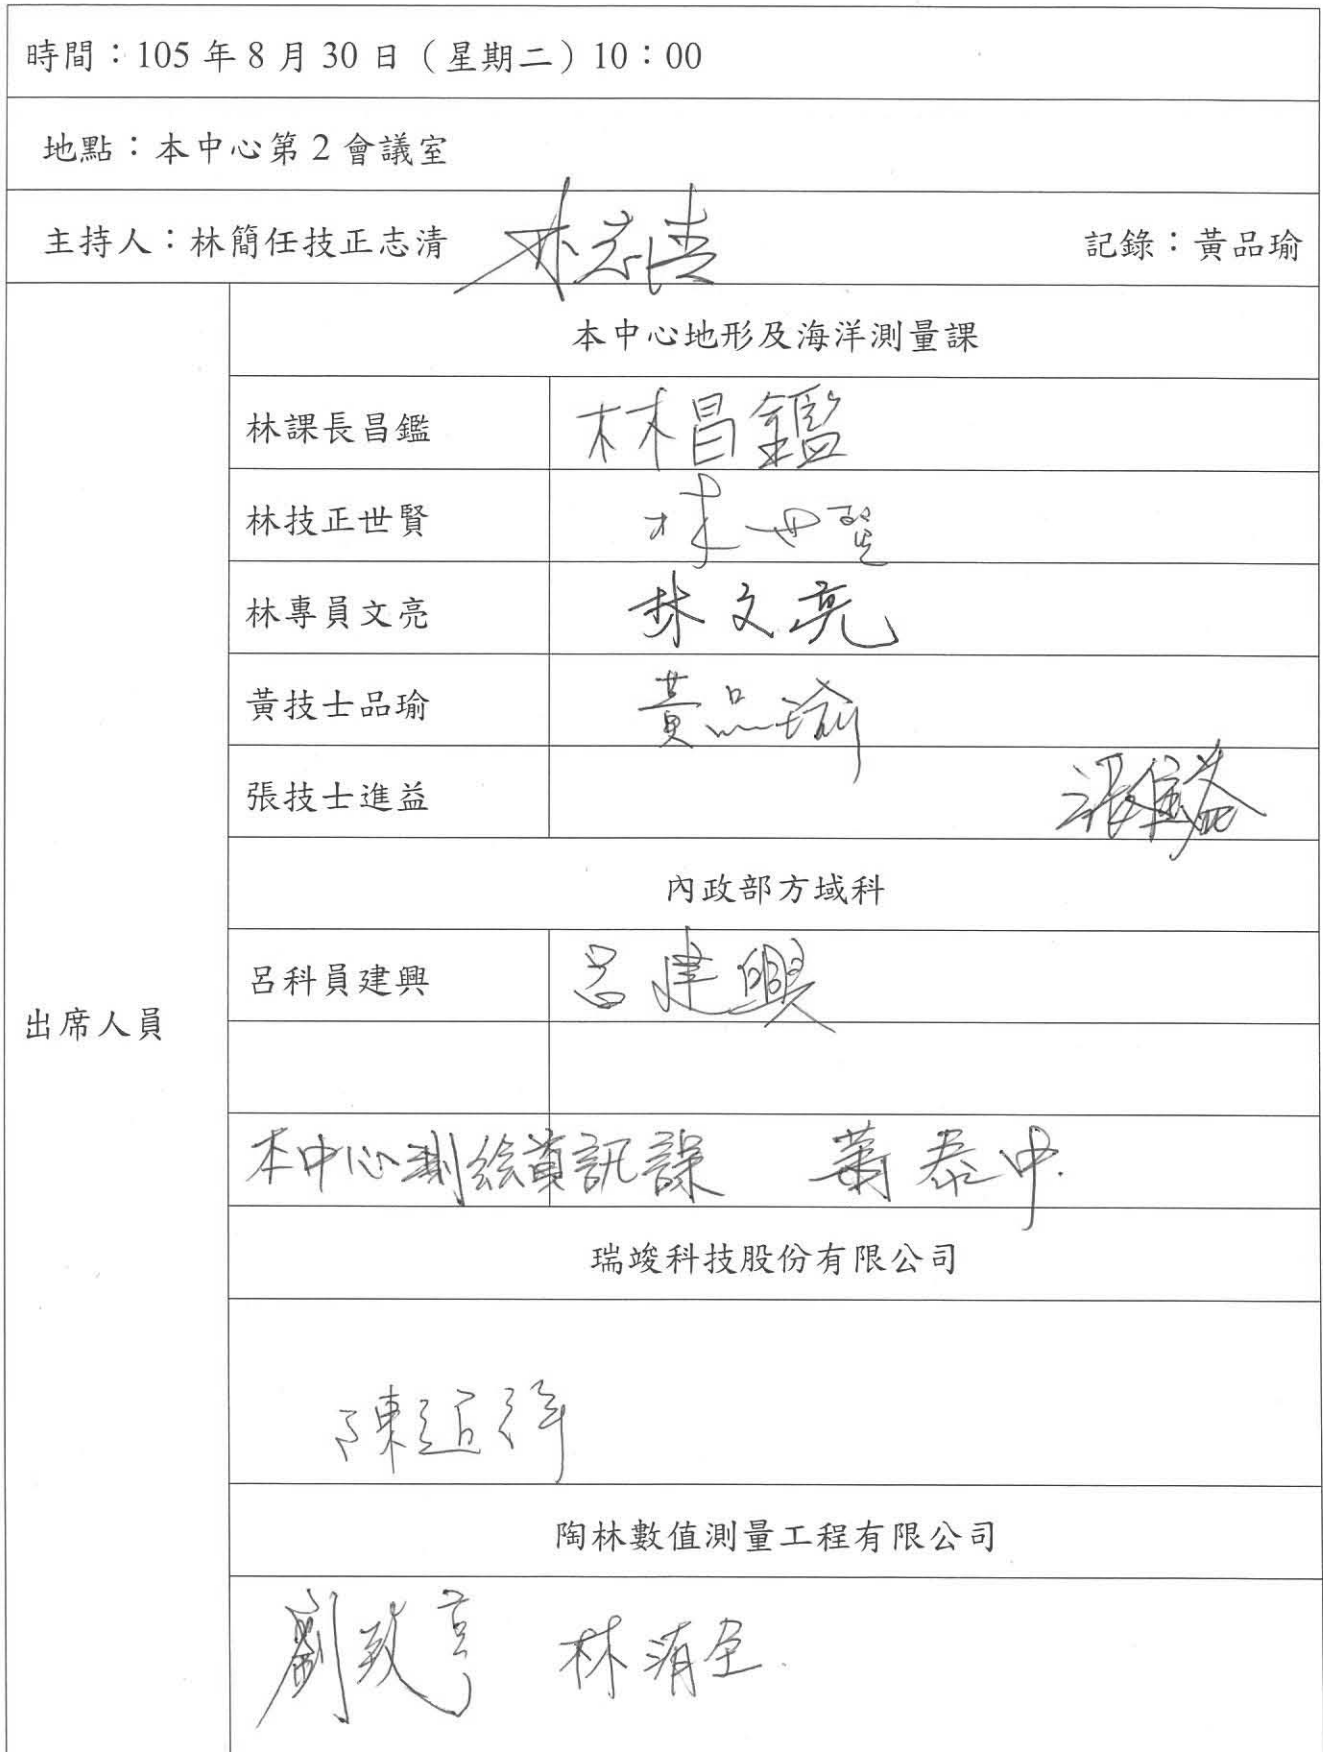 時間：105 年 8 月 30 日（星期二）10：00
地點：本中心第 2 會議室
主持人：林簡任技正志清 林志清 記錄：黃品瑜
本中心地形及海洋測量課
林課長昌鑑 林昌鑑
林技正世賢 林世賢
林專員文亮 林文亮
黃技士品瑜 黃品瑜
張技士進益 張進益
內政部方域科
呂科員建興 呂建興
出席人員
本中心測繪資訊課 蕭泰中
瑞竣科技股份有限公司
陳
陶林數值測量工程有限公司
劉致亨 林清全